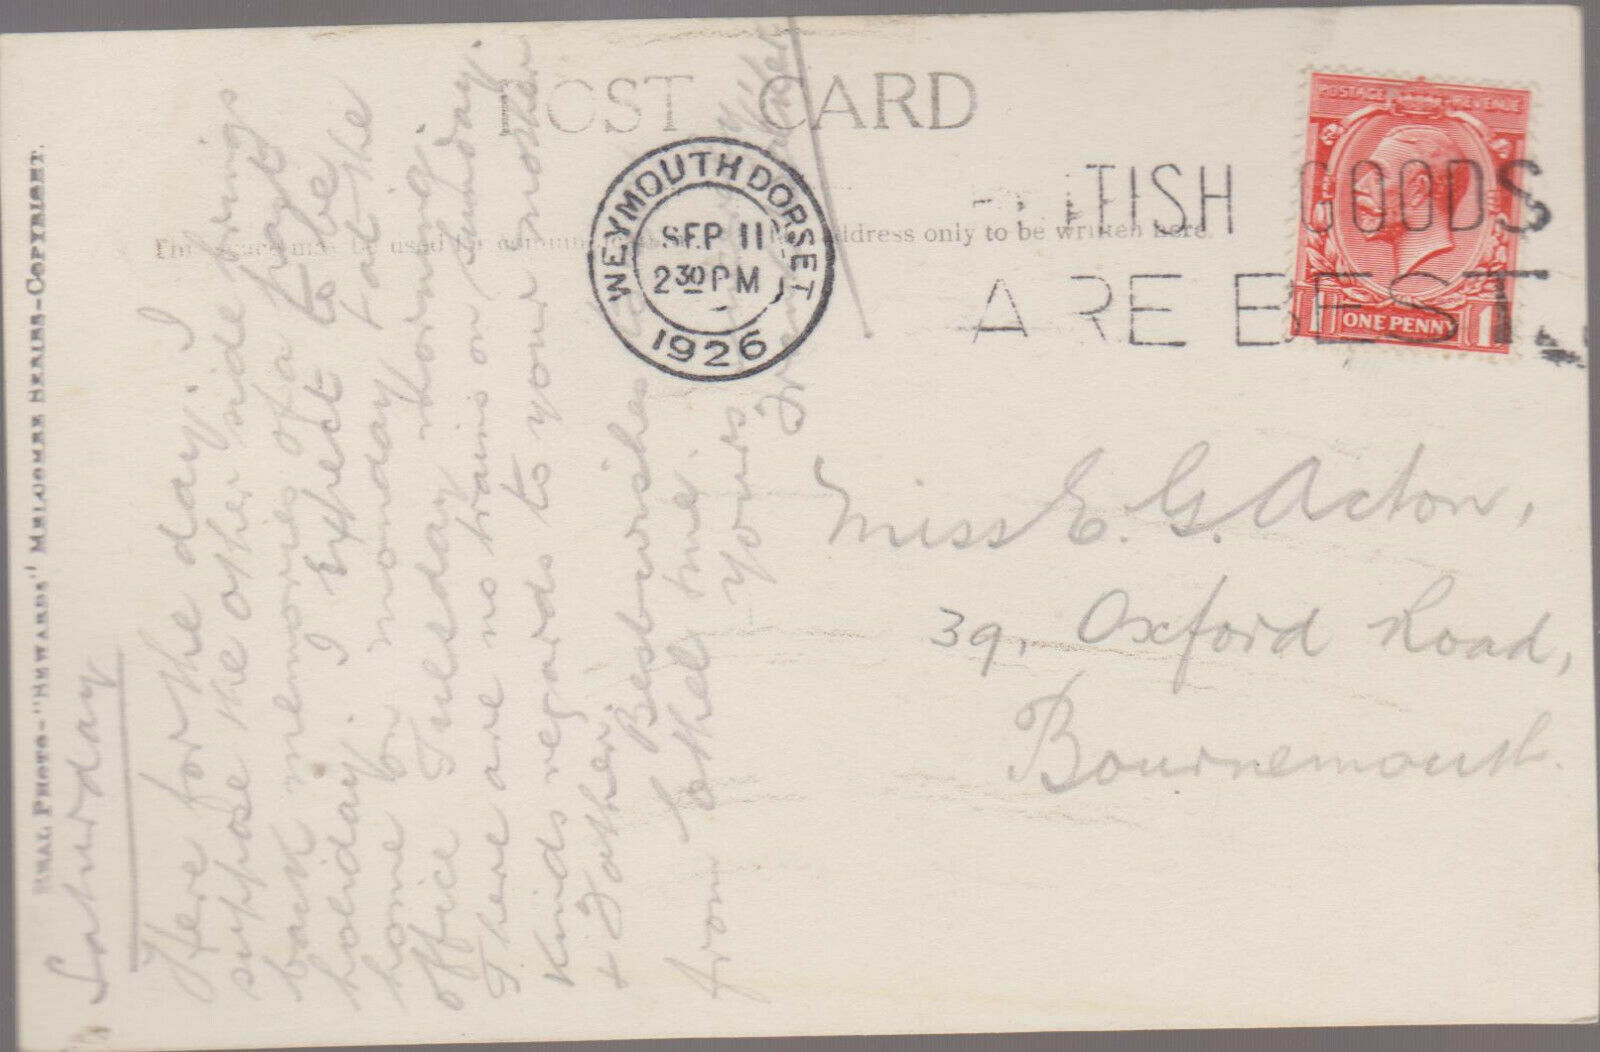 POST CARD
This space may be used for communication
The address only to be written here.
REAL PHOTO-"SEWARDS" MELCOMBE REGIS-COPYRIGHT.
WEYMOUTH DORSET
SEP 11
2 30 PM
1926
BRITISH GOODS
ARE BEST
POSTAGE REVENUE
1 ONE PENNY 1
Saturday
Here for the day. I
suppose the other side brings
back memories of a past
holiday. I expect to be
home on monday + at the
office Tuesday morning.
There are no trains on Sunday.
Kinds regards to your mother
+ Father.
Best wishes
from Ethel + me.
Yours
Miss E. G. Acton,
39, Oxford Road,
Bournemouth.